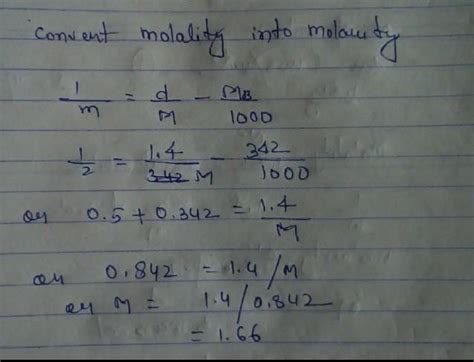 convert molality into molarity
1/m = d/M - MB/1000
1/2 = 1.4/M - 342/1000
or 0.5 + 0.342 = 1.4/M
or 0.842 = 1.4/M
or M = 1.4/0.842
= 1.66